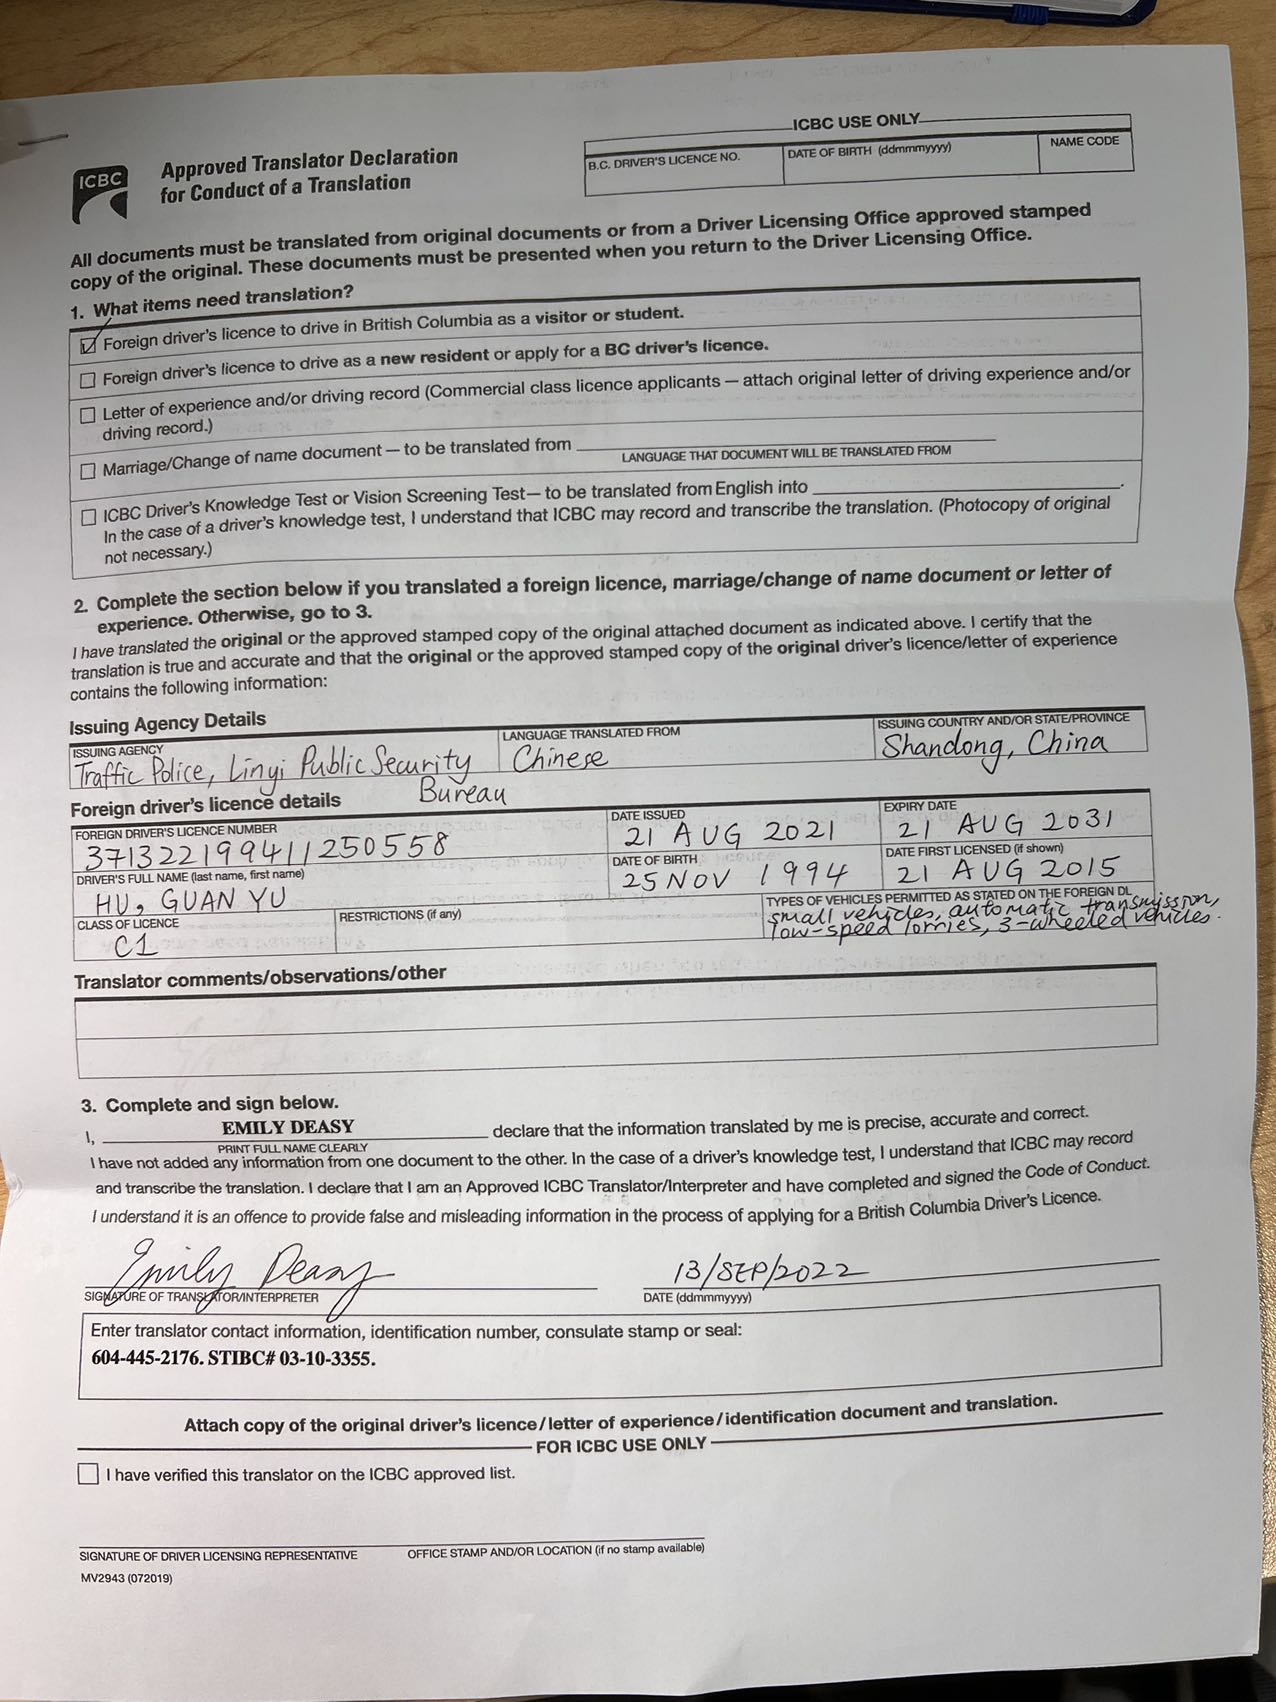 ICBC USE ONLY
B.C. DRIVER'S LICENCE NO.
DATE OF BIRTH (ddmmmyyyy)
NAME CODE
ICBC
Approved Translator Declaration
for Conduct of a Translation
All documents must be translated from original documents or from a Driver Licensing Office approved stamped
copy of the original. These documents must be presented when you return to the Driver Licensing Office.
1. What items need translation?
Foreign driver's licence to drive in British Columbia as a visitor or student.
Foreign driver's licence to drive as a new resident or apply for a BC driver's licence.
Letter of experience and/or driving record (Commercial class licence applicants — attach original letter of driving experience and/or
driving record.)
Marriage/Change of name document — to be translated from
LANGUAGE THAT DOCUMENT WILL BE TRANSLATED FROM
ICBC Driver's Knowledge Test or Vision Screening Test— to be translated from English into .
In the case of a driver's knowledge test, I understand that ICBC may record and transcribe the translation. (Photocopy of original
not necessary.)
2. Complete the section below if you translated a foreign licence, marriage/change of name document or letter of
experience. Otherwise, go to 3.
I have translated the original or the approved stamped copy of the original attached document as indicated above. I certify that the
translation is true and accurate and that the original or the approved stamped copy of the original driver's licence/letter of experience
contains the following information:
Issuing Agency Details
ISSUING AGENCY
Traffic Police, Linyi Public Security
Bureau
LANGUAGE TRANSLATED FROM
Chinese
ISSUING COUNTRY AND/OR STATE/PROVINCE
Shandong, China
Foreign driver's licence details
FOREIGN DRIVER'S LICENCE NUMBER
371322199411250558
DATE ISSUED
21 AUG 2021
EXPIRY DATE
21 AUG 2031
DRIVER'S FULL NAME (last name, first name)
HU, GUAN YU
DATE OF BIRTH
25 NOV 1994
DATE FIRST LICENSED (if shown)
21 AUG 2015
CLASS OF LICENCE
C1
RESTRICTIONS (if any)
TYPES OF VEHICLES PERMITTED AS STATED ON THE FOREIGN DL
small vehicles, automatic transmission,
low-speed lorries, 3-wheeled vehicles.
Translator comments/observations/other
3. Complete and sign below.
I, EMILY DEASY declare that the information translated by me is precise, accurate and correct.
PRINT FULL NAME CLEARLY
I have not added any information from one document to the other. In the case of a driver's knowledge test, I understand that ICBC may record
and transcribe the translation. I declare that I am an Approved ICBC Translator/Interpreter and have completed and signed the Code of Conduct.
I understand it is an offence to provide false and misleading information in the process of applying for a British Columbia Driver's Licence.
Emily Deasy
13/SEP/2022
SIGNATURE OF TRANSLATOR/INTERPRETER
DATE (ddmmmyyyy)
Enter translator contact information, identification number, consulate stamp or seal:
604-445-2176. STIBC# 03-10-3355.
Attach copy of the original driver's licence/letter of experience/identification document and translation.
FOR ICBC USE ONLY
I have verified this translator on the ICBC approved list.
SIGNATURE OF DRIVER LICENSING REPRESENTATIVE
OFFICE STAMP AND/OR LOCATION (if no stamp available)
MV2943 (072019)